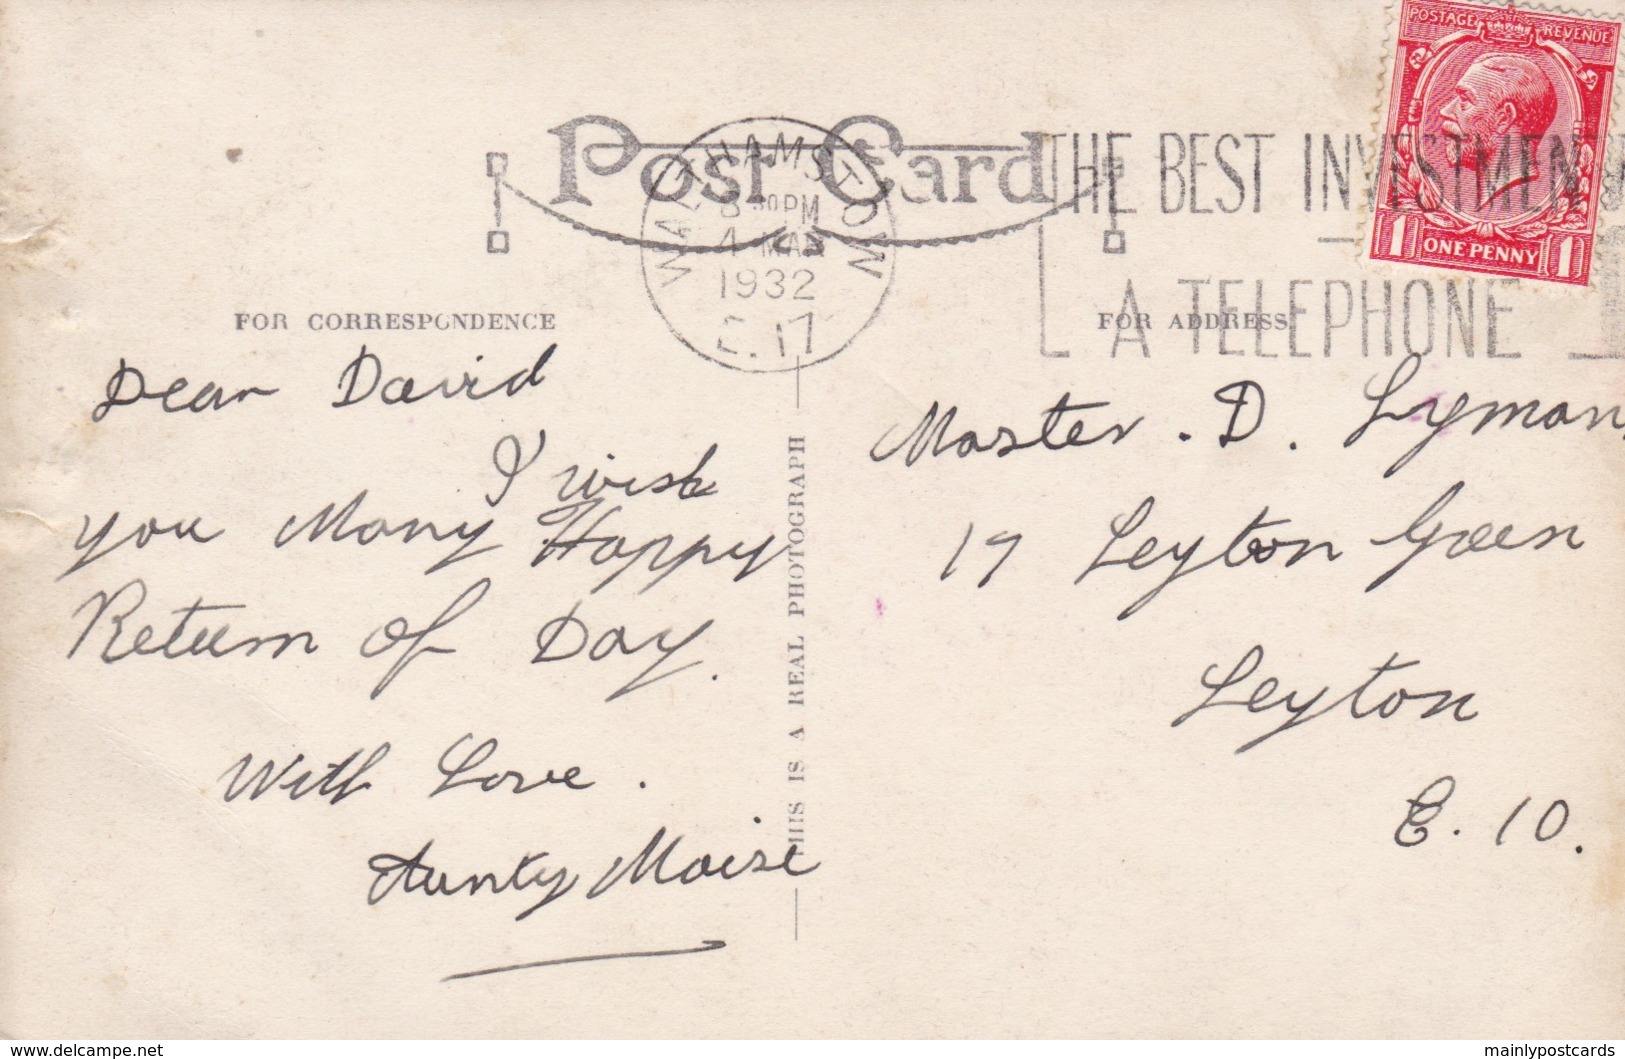 POSTAGE REVENUE
1 ONE PENNY 1
Post Card
WALTHAMSTOW
8 30PM
1932
E.17
THE BEST INVESTMENT
A TELEPHONE
FOR CORRESPONDENCE
FOR ADDRESS
Dear David
I wish
you Many Happy
Return of Day.
With Love.
Aunty Maise
THIS IS A REAL PHOTOGRAPH
Master. D. Lyman,
Leyton Green
Leyton
E. 10.
www.delcampe.net
mainlypostcards